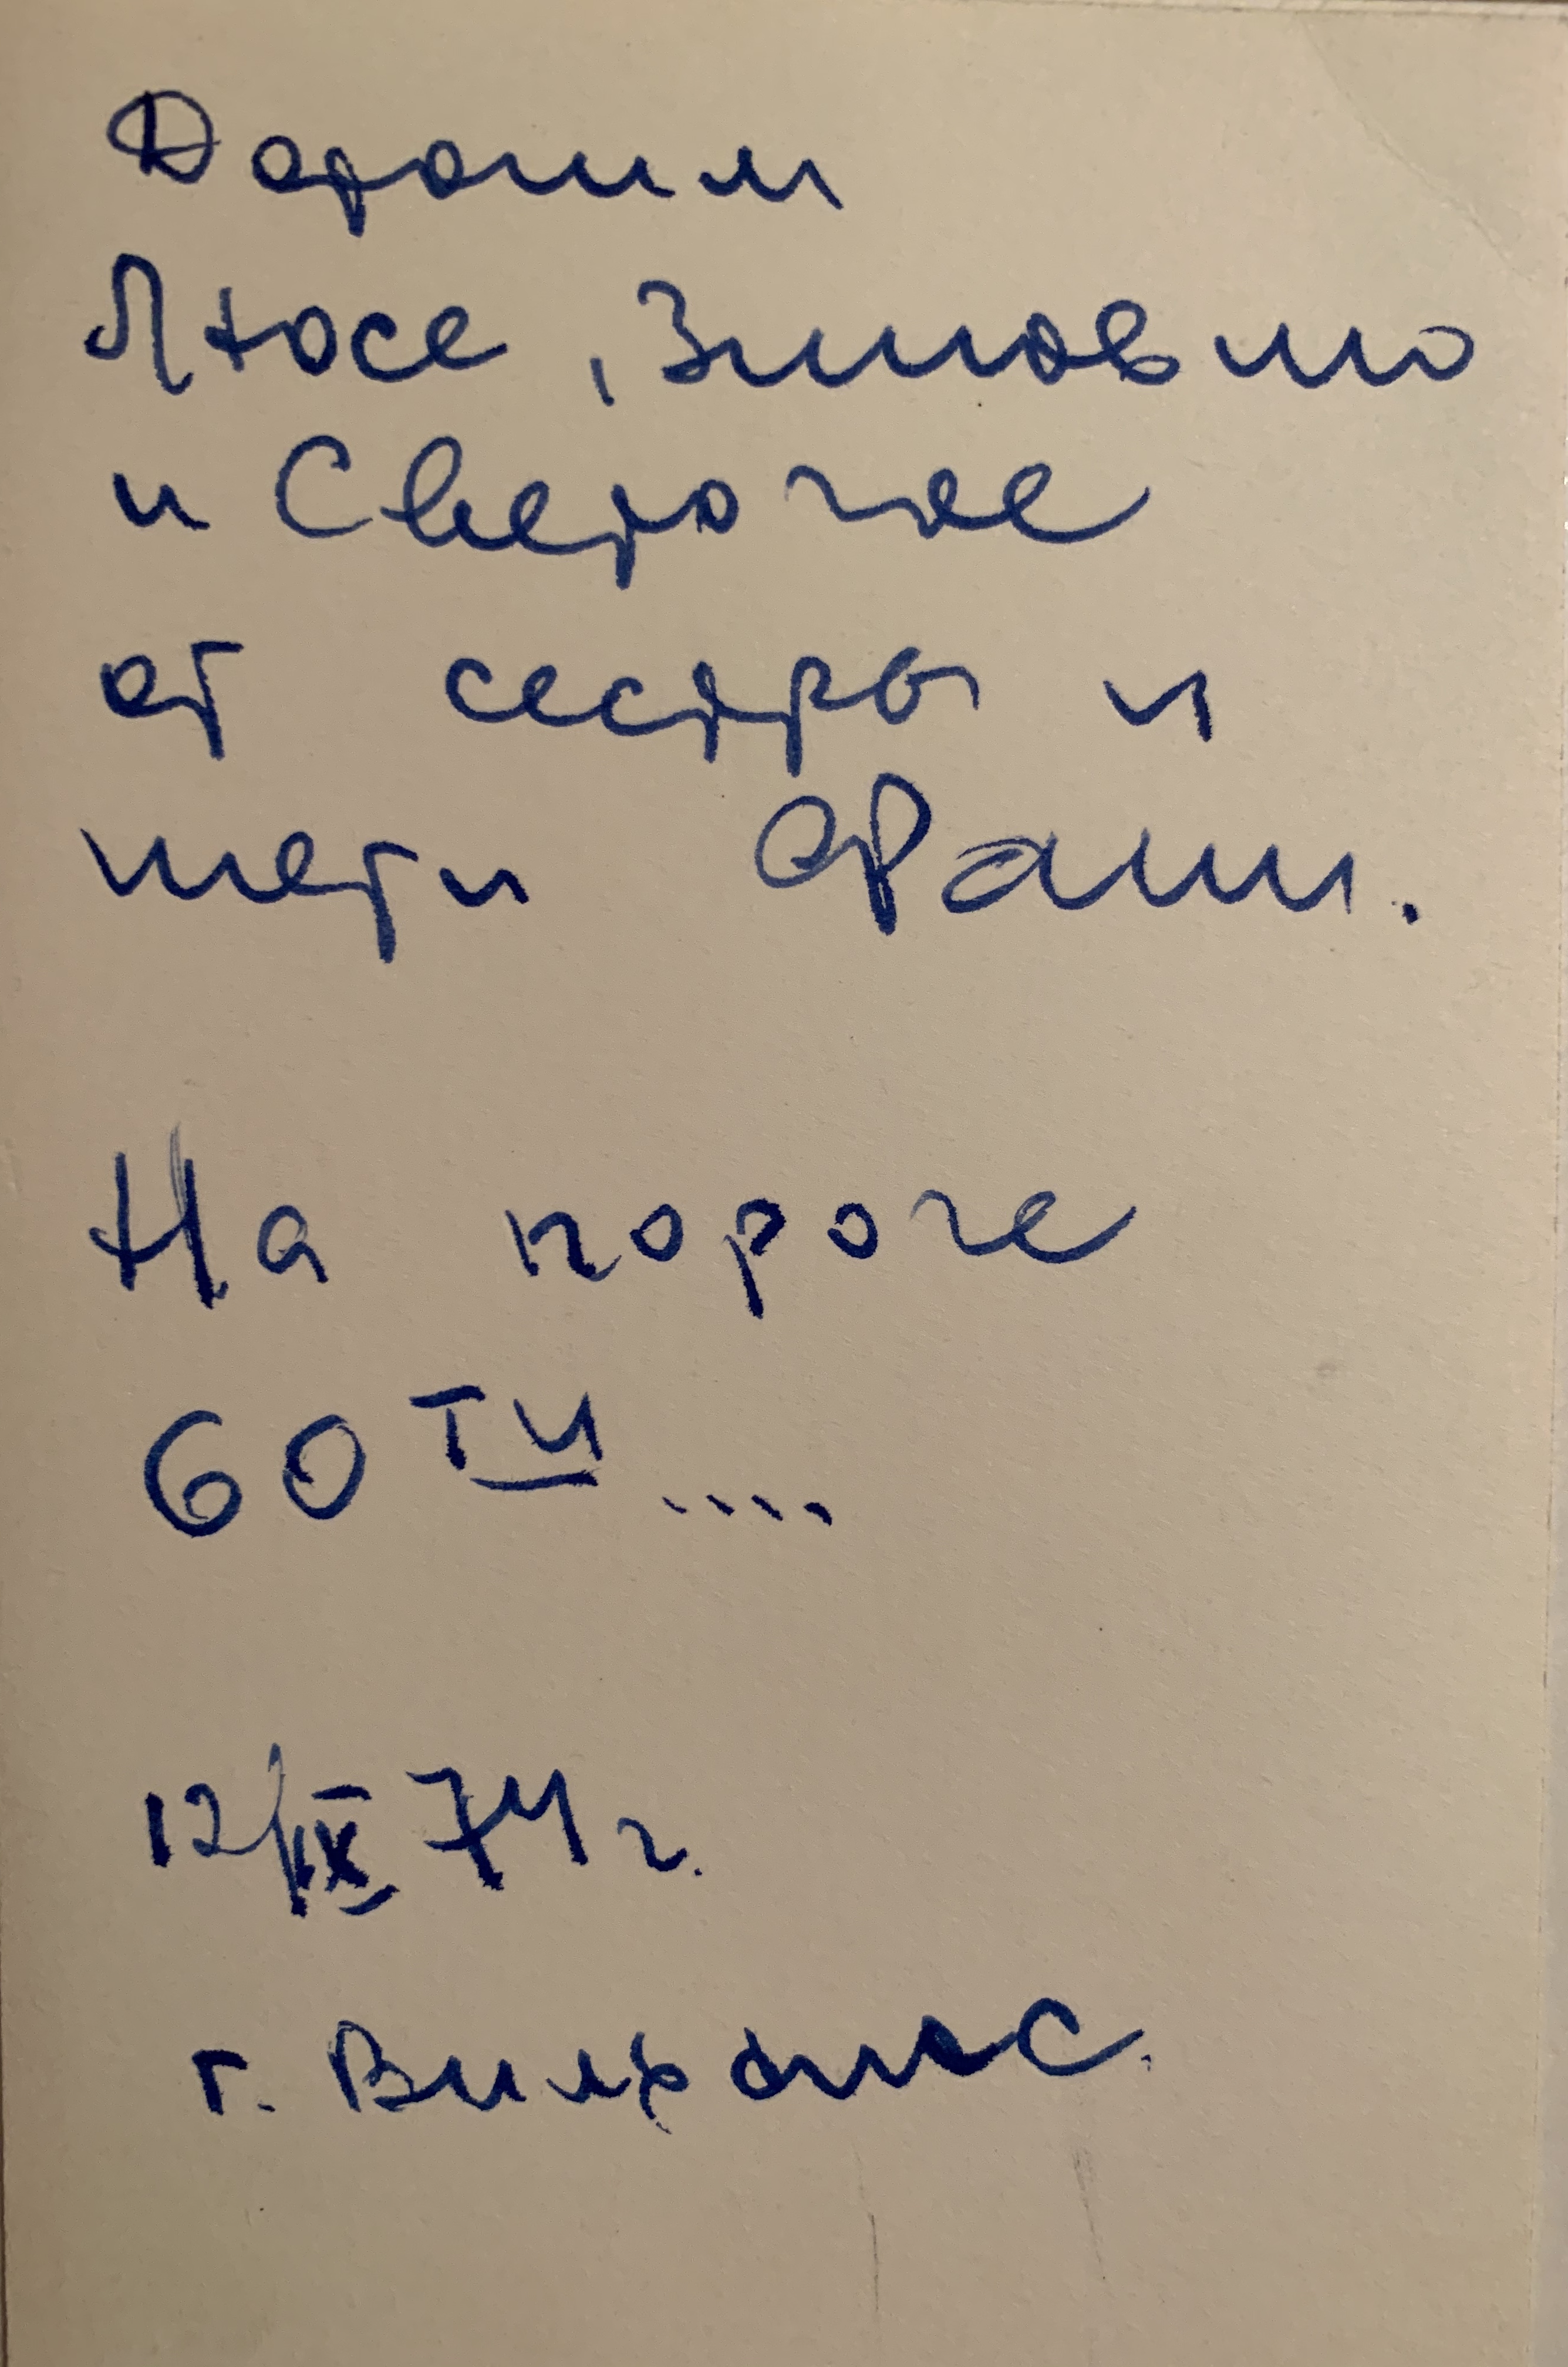 Дорогим
Люсе, Зиновию
и Светочке
от сестры и
тети Фани.
На пороге
60ти....
12/IX 74 г.
г. Вильнюс.